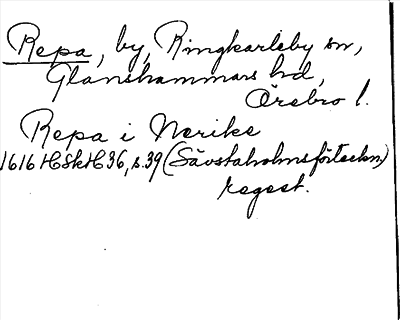 Repa, by, Ringkarleby sn,
Glanshammars hd,
Örebro l.
Repa i Nerike
1616 HSkH 36, s. 39 (Sävstaholmsförteckn)
regest.